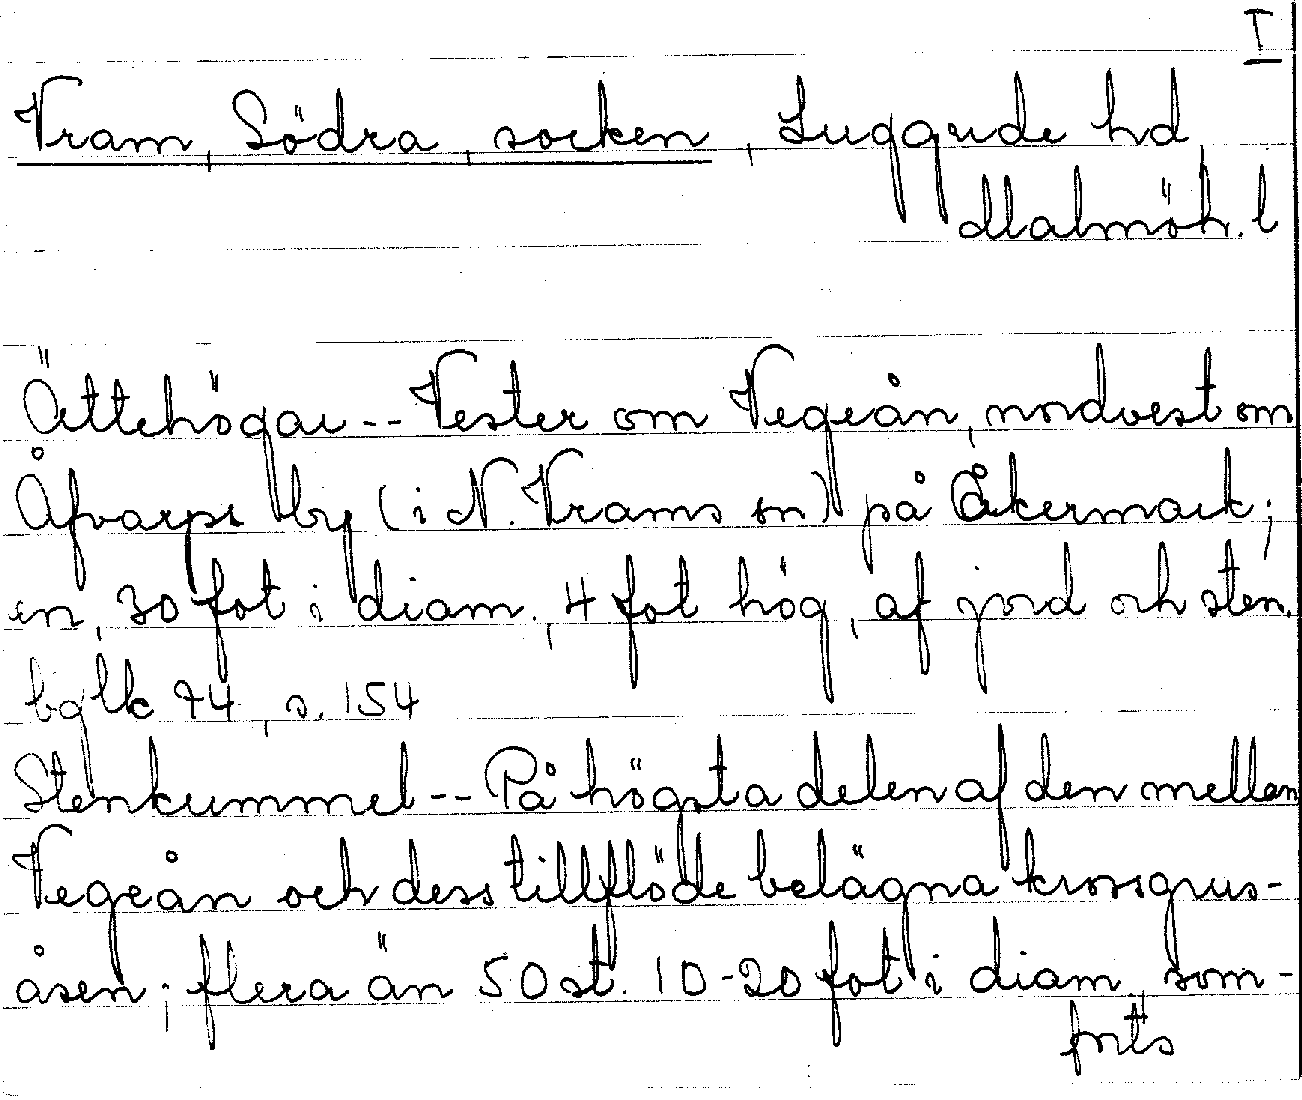 I
Vram, Södra, socken, Luggude hd
Malmöh. l
Ättehögar -- Vester om Vegeån, nordvest om
Åfvarps by (i N. Vrams sn) på Åkermark;
en, 30 fot i diam., 4 fot hög, af jord och sten.
bglk 74, s. 154
Stenkummel -- På högsta delen af den mellan
Vegeån och dess tillflöde belägna krossgrus-
åsen; flera än 50 st. 10-20 fot i diam, som-
forts